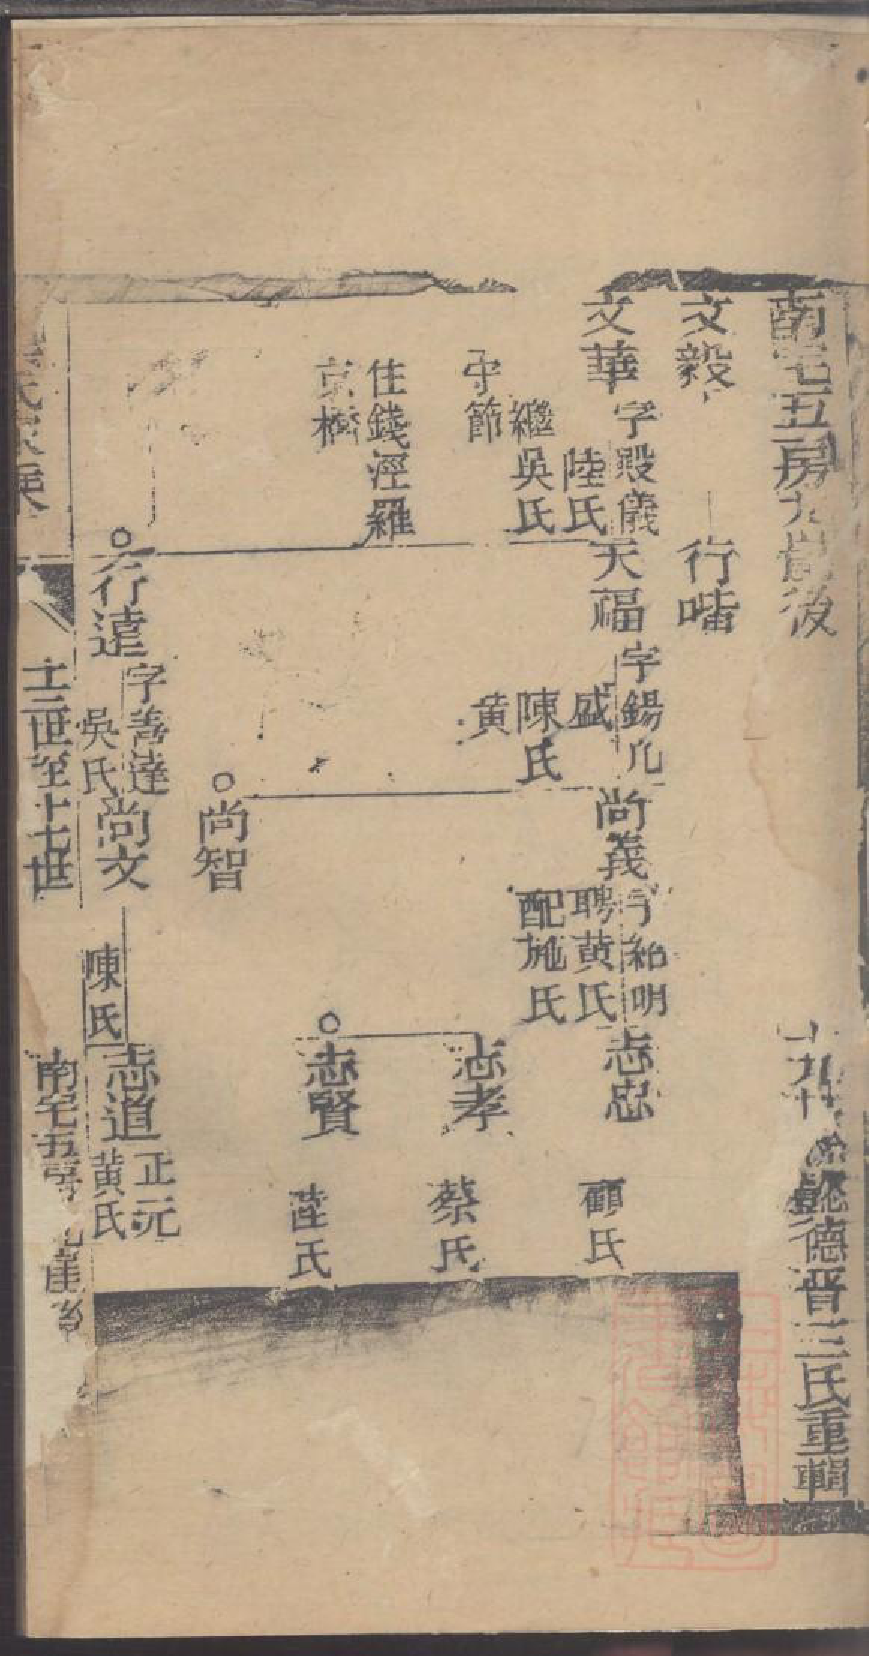 南宅五房九崖後
德晋三氏重輯
文毅
行喈
文華
字殿儀
陸氏
繼吳氏
守節
住錢涇羅
京橋
天福
字錫凡
盛
陳氏
黃
尚義
字紹明
聘黄氏
配施氏
志忠
顧氏
志孝
蔡氏
志賢
陸氏
尚智
行達
字善達
吳氏
尚文
陳氏
志道
正元
黃氏
十三世至十七世
南宅五房九崖後